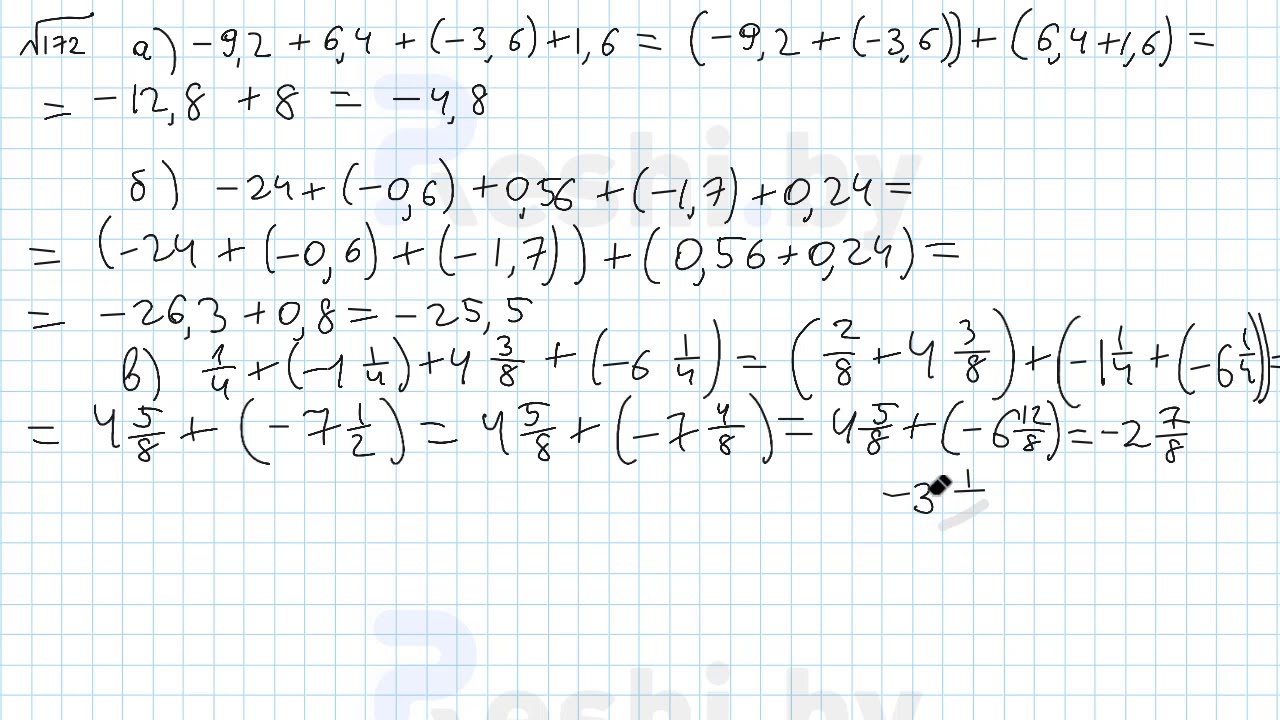 √172 а) -9,2 + 6,4 + (-3,6) + 1,6 = (-9,2 + (-3,6)) + (6,4 + 1,6) =
= -12,8 + 8 = -4,8
б) -24 + (-0,6) + 0,56 + (-1,7) + 0,24 =
= (-24 + (-0,6) + (-1,7)) + (0,56 + 0,24) =
= -26,3 + 0,8 = -25,5
в) 1/4 + (-1 1/4) + 4 3/8 + (-6 1/4) = (2/8 + 4 3/8) + (-1 1/4 + (-6 1/4)) =
= 4 5/8 + (-7 1/2) = 4 5/8 + (-7 4/8) = 4 5/8 + (-6 12/8) = -2 7/8
-3 1/
Reshi.by
Reshi.by